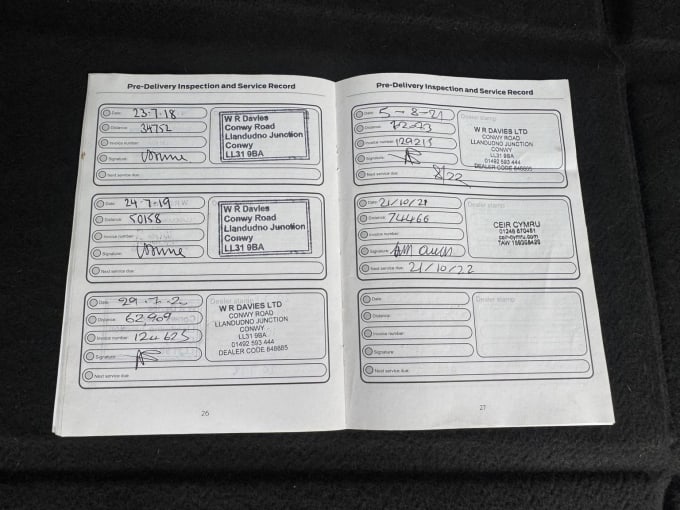 Pre-Delivery Inspection and Service Record
Date: 23-7-18
Distance: 34752
Invoice number:
Signature:
Next service due:
W R Davies
Conwy Road
Llandudno Junction
Conwy
LL31 9BA
Date: 24-7-19
Distance: 50158
Invoice number:
Signature:
Next service due:
W R Davies
Conwy Road
Llandudno Junction
Conwy
LL31 9BA
Date: 29-7-20
Distance: 62,909
Invoice number: 124625
Signature:
Next service due:
Dealer stamp
W R DAVIES LTD
CONWY ROAD
LLANDUDNO JUNCTION
CONWY
LL31 9BA
01492 593 444
DEALER CODE 848685
26
Pre-Delivery Inspection and Service Record
Date: 5-8-21
Distance:
Invoice number: 129215
Signature:
Next service due: 8/22
Dealer stamp
W R DAVIES LTD
CONWY ROAD
LLANDUDNO JUNCTION
CONWY
LL31 9BA
01492 593 444
DEALER CODE 848685
Date: 21/10/21
Distance: 74466
Invoice number:
Signature:
Next service due: 21/10/22
Dealer stamp
CEIR CYMRU
01248 670451
ceir-cymru.com
Date:
Distance:
Invoice number:
Signature:
Next service due:
Dealer stamp
27